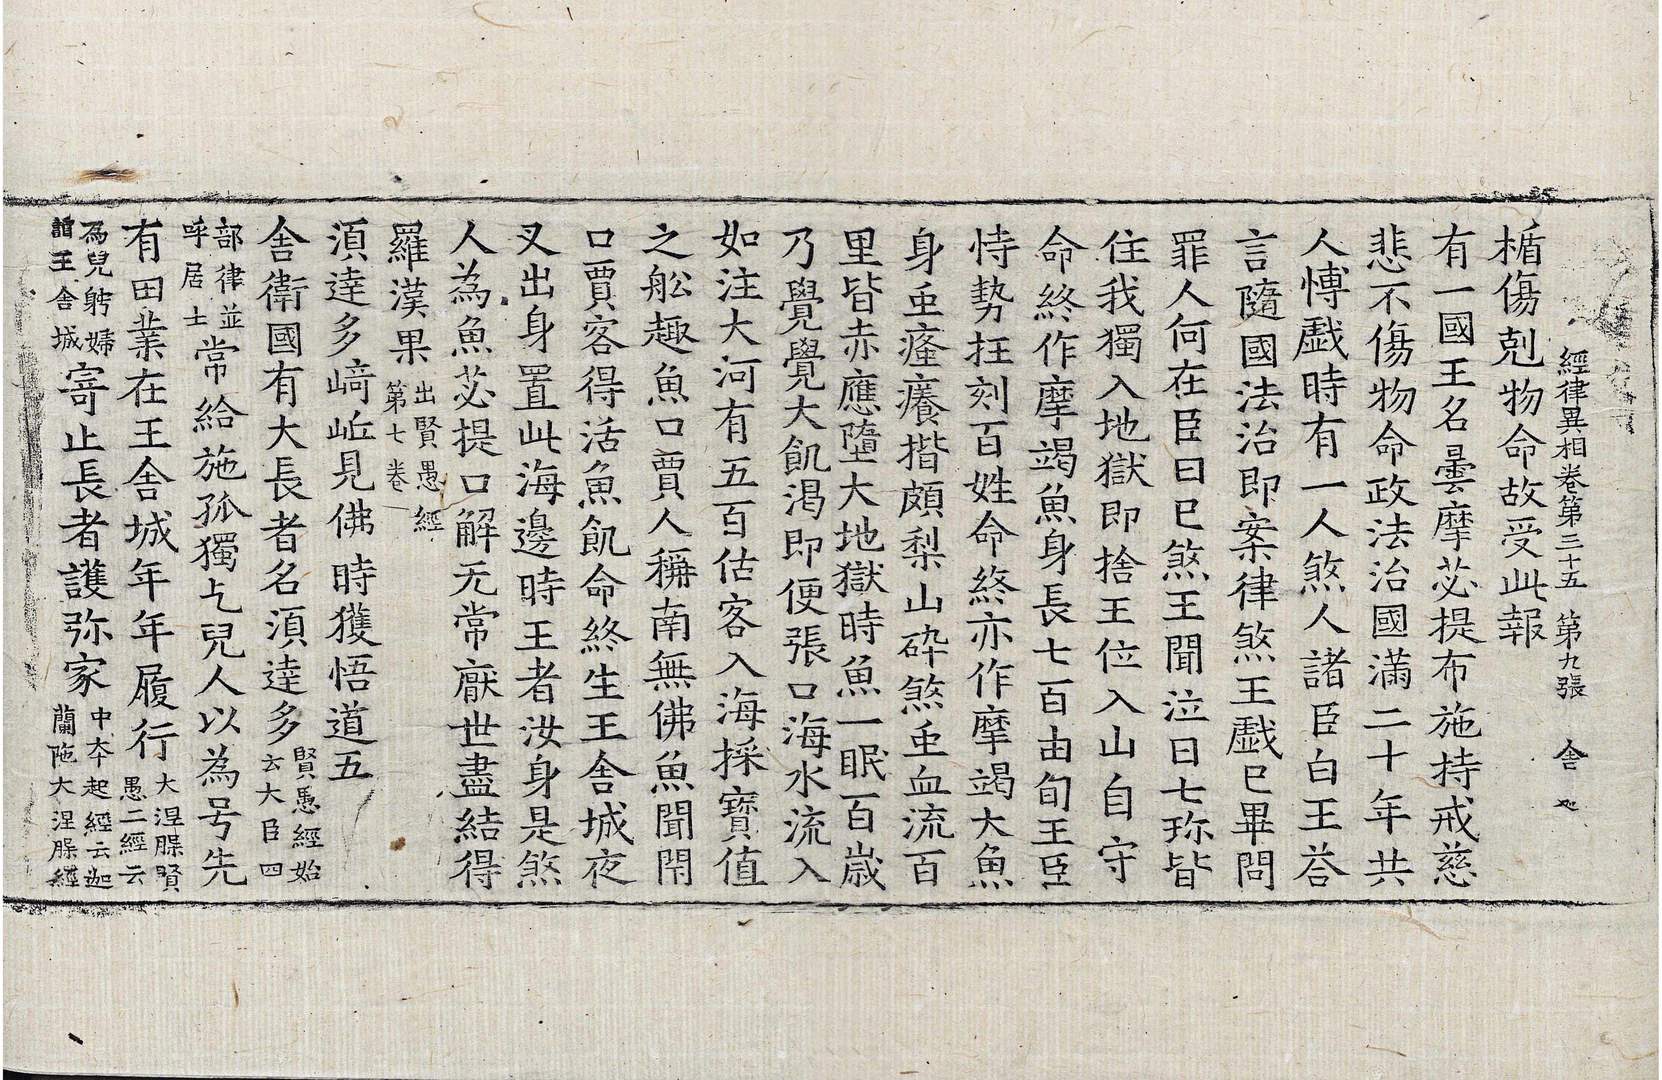 經律異相卷第三十五 第九張 舍
楯傷剋物命故受此報
有一國王名曇摩苾提布施持戒慈
悲不傷物命政法治國滿二十年共
人愽戱時有一人煞人諸臣白王荅
言隨國法治即案律煞王戱巳畢問
罪人何在臣曰巳煞王聞泣曰七珎皆
住我獨入地獄即捨王位入山自守
命終作摩竭魚身長七百由旬王臣
恃勢抂刻百姓命終亦作摩竭大魚
身䖝瘙癢揩頗梨山碎煞䖝血流百
里皆赤應墮大地獄時魚一眠百歳
乃覺覺大飢渴即便張口海水流入
如注大河有五百估客入海採寶值
之舩趣魚口賈人稱南無佛魚聞閇
口賈客得活魚飢命終生王舍城夜
叉出身置此海邊時王者汝身是煞
人為魚苾提口解无常厭世盡結得
羅漢果出賢愚經第七卷
湏達多﨑岴見佛時獲悟道五
舍衛國有大長者名湏達多賢愚經始云大臣四
部律並呼居士常給施孤獨乞兒人以為号先
有田業在王舍城年年履行大涅脲賢愚二經云
為兒娉婦詣王舍城寄止長者護弥家中夲起經云迦蘭陁大涅脲經